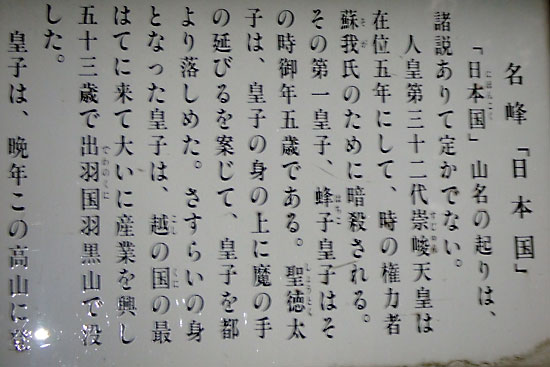 名峰「日本国」
「日本国」山名の起りは、
諸説ありて定かでない。
人皇第三十二代崇峻天皇は
在位五年にして、時の権力者
蘇我氏のために暗殺される。
その第一皇子、蜂子皇子はそ
の時御年五歳である。聖徳太
子は、皇子の身の上に魔の手
の延びるを案じて、皇子を都
より落しめた。さすらいの身
となった皇子は、越の国の最
はてに来て大いに産業を興し
五十三歳で出羽国羽黒山で没
した。
皇子は、晩年この高山に登